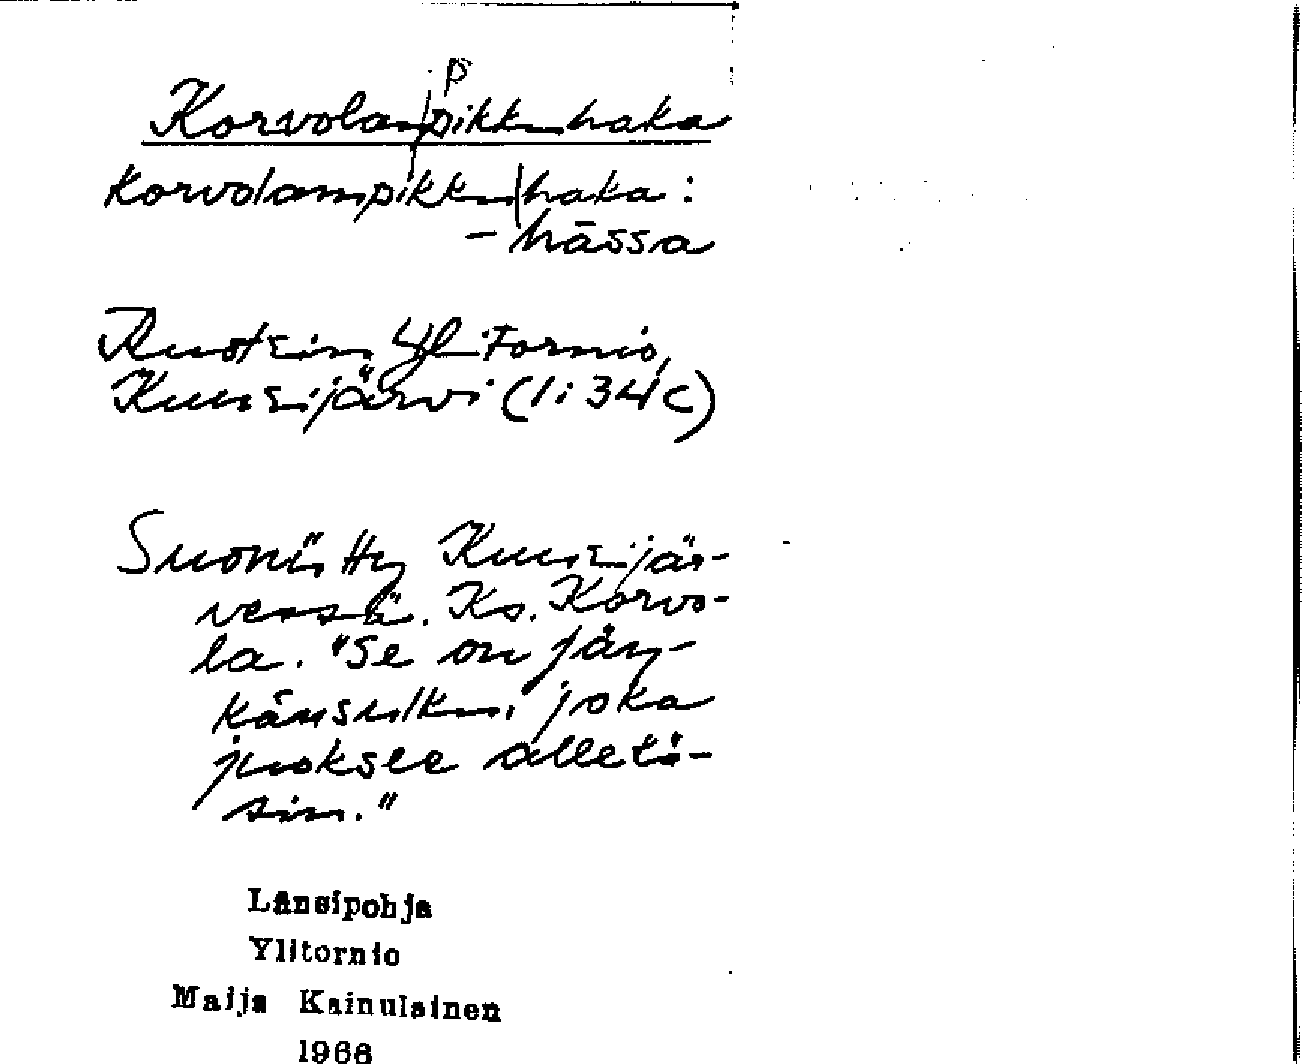 p
Korvolan|pikkuhaka
Korvolampikku|haka:
- hāssa
Ruotsin Ylitornio,
Kuusijärvi (1:34 C)
Suoniitty Kuusijär-
vessä. Ks. Korvo-
la. "Se on jän-
känsulku, joka
juoksee alletä-
sin."
Länsipohja
Ylitornio
Maija Kainulainen
1966